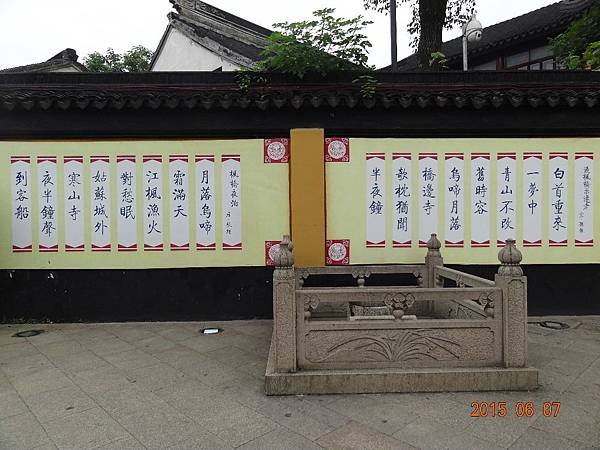 過楓橋寺示遷老 宋 孫覿
白首重來
一夢中
青山不改
舊時容
烏啼月落
橋邊寺
欹枕猶聞
半夜鐘
楓橋夜泊 唐 張繼
月落烏啼
霜滿天
江楓漁火
對愁眠
姑蘇城外
寒山寺
夜半鐘聲
到客船
2015 06 07